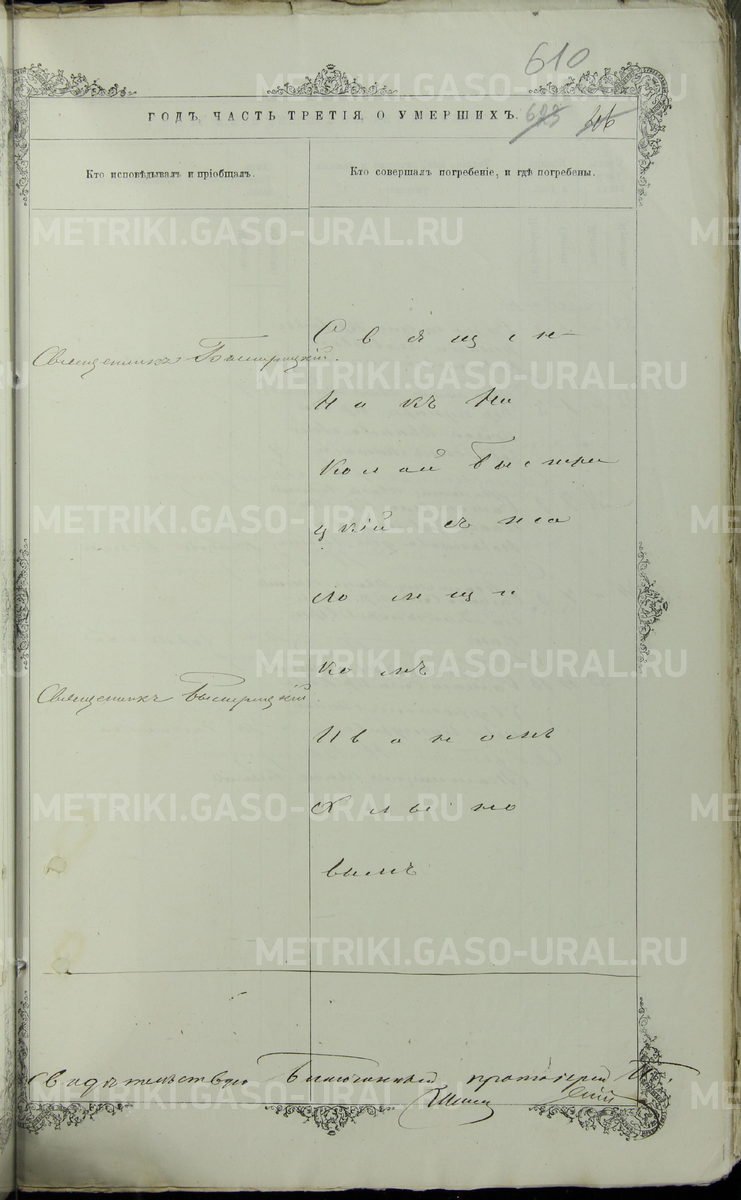 610
ГОДЪ, ЧАСТЬ ТРЕТІЯ, О УМЕРШИХЪ.
Кто исповѣдывалъ и пріобщалъ.
Кто совершалъ погребеніе, и гдѣ погребены.
Священникъ Быстрицкій.
Свящeн-
никъ Ни
колай Быстри
цкій съ пса
ломщи
комъ
Священникъ Быстрицкій
Иваномъ
Хлыно
вымъ
Свидѣтельствую Благочинный протоіерей
METRIKI.GASO-URAL.RU